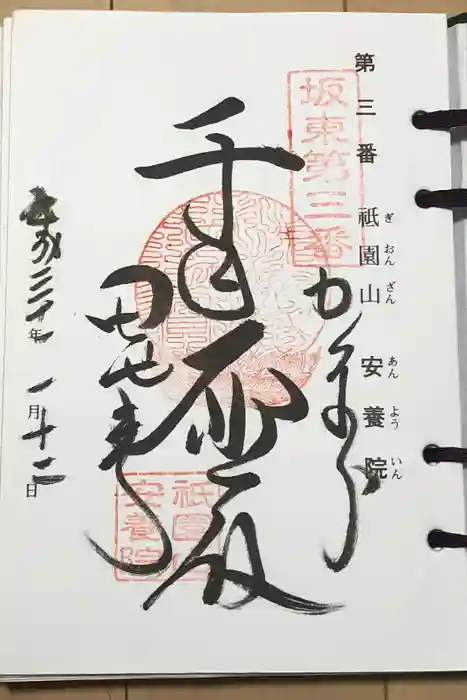 第三番 祇園山 安養院
ぎ おん ざん あん よう いん
坂東第三番
かまくら
千
祇園山
安養院
平成三十年 一月十二日